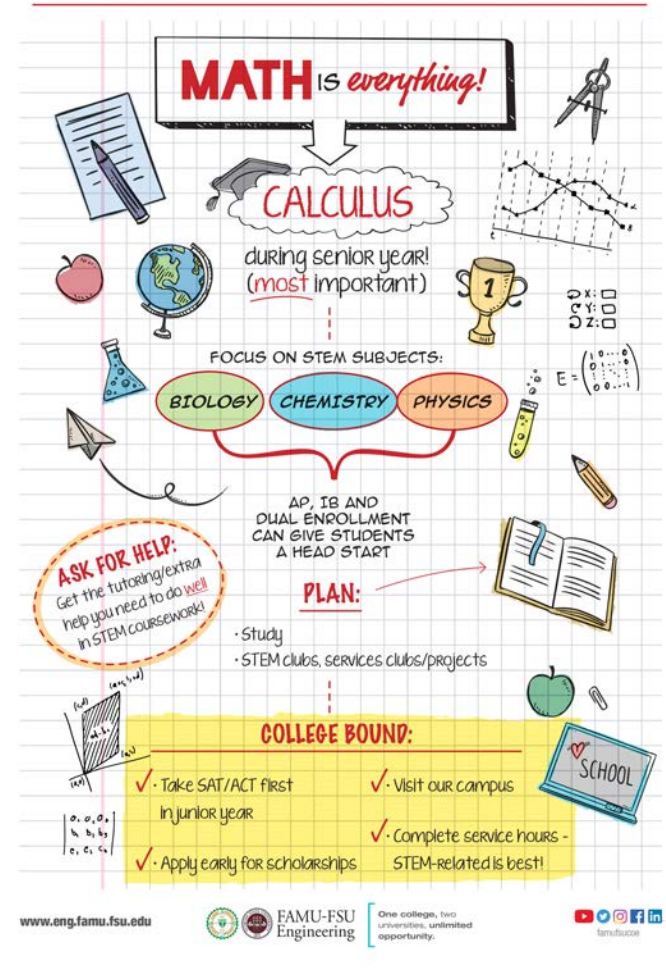 MATH IS everything!
CALCULUS
during senior year!
(most important)
FOCUS ON STEM SUBJECTS:
BIOLOGY
CHEMISTRY
PHYSICS
X:
Y:
Z:
E =
1
AP, IB AND
DUAL ENROLLMENT
CAN GIVE STUDENTS
A HEAD START
ASK FOR HELP:
Get the tutoring/extra
help you need to do well
in STEM coursework!
PLAN:
· Study
· STEM clubs, services clubs/projects
COLLEGE BOUND:
✓· Take SAT/ACT first
in junior year
✓· Apply early for scholarships
✓· Visit our campus
✓· Complete service hours -
STEM-related is best!
SCHOOL
www.eng.famu.fsu.edu
FAMU-FSU
Engineering
One college, two
universities, unlimited
opportunity.
famufsucoe